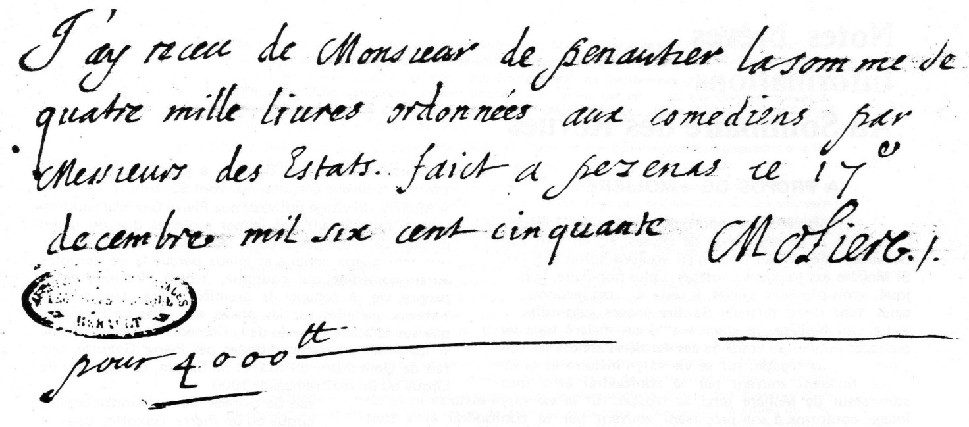 J'ay receu de Monsieur de penautier la somme de
quatre mille livres ordonnées aux comediens par
Messieurs des Estats. faict a pezenas ce 17e
decembre mil six cent cinquante Moliere.
HERAULT
pour 4000tt